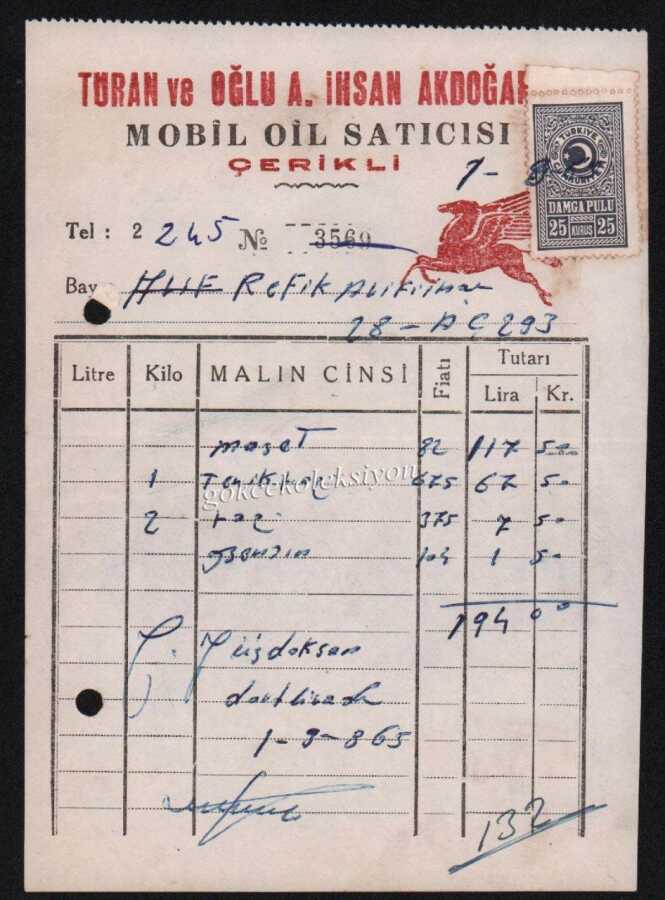 TURAN ve OĞLU A. İHSAN AKDOĞAN
MOBİL OİL SATICISI
ÇERİKLİ
TÜRKİYE CUMHURİYETİ
DAMGA PULU
25 KURUŞ 25
Tel : 2 245 № 3569
Bay Refik
28-AC 293
Litre Kilo MALIN CİNSİ Fiatı Tutarı
Lira Kr.
mazot 82 117 50
1 675 67 50
2 375 7 50
Benzin 104 1 50
gokcekoleksiyon
194 00
Yüzdoksan
dört liradır
132